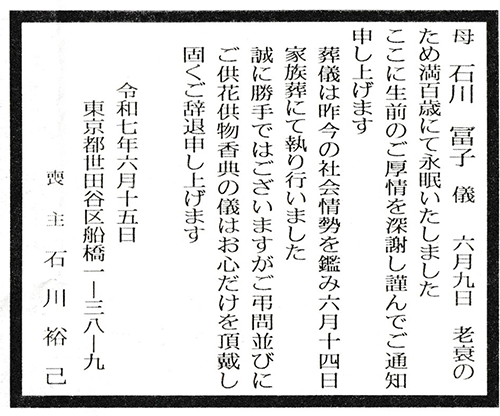 母 石川 冨子 儀 六月九日 老衰の
ため満百歳にて永眠いたしました
ここに生前のご厚情を深謝し謹んでご通知
申し上げます
葬儀は昨今の社会情勢を鑑み六月十四日
家族葬にて執り行いました
誠に勝手ではございますがご弔問並びに
ご供花供物香典の儀はお心だけを頂戴し
固くご辞退申し上げます
令和七年六月十五日
東京都世田谷区船橋一―三八―九
喪主 石川裕己